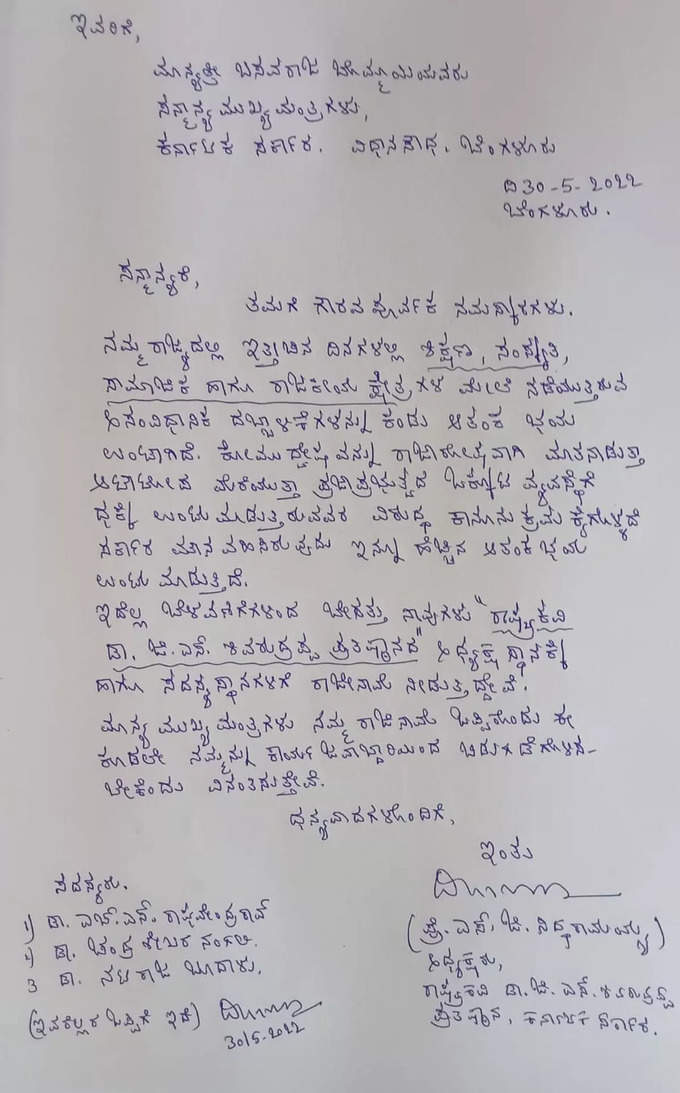 ಇವರಿಗೆ,
ಮಾನ್ಯಶ್ರೀ ಬಸವರಾಜ ಬೊಮ್ಮಾಯಿಯವರು
ಸನ್ಮಾನ್ಯ ಮುಖ್ಯಮಂತ್ರಿಗಳು,
ಕರ್ನಾಟಕ ಸರ್ಕಾರ. ವಿಧಾನಸೌಧ. ಬೆಂಗಳೂರು
ದಿ 30-5-2022
ಬೆಂಗಳೂರು.
ಸನ್ಮಾನ್ಯರೆ,
ತಮಗೆ ಗೌರವ ಪೂರ್ವಕ ನಮಸ್ಕಾರಗಳು.
ನಮ್ಮ ರಾಜ್ಯದಲ್ಲಿ ಇತ್ತೀಚಿನ ದಿನಗಳಲ್ಲಿ ಶಿಕ್ಷಣ, ಸಂಸ್ಕೃತಿ,
ಸಾಮಾಜಿಕ ಹಾಗೂ ರಾಜಕೀಯ ಕ್ಷೇತ್ರಗಳ ಮೇಲೆ ನಡೆಯುತ್ತಿರುವ
ಅಸಂವಿಧಾನಿಕ ದಬ್ಬಾಳಿಕೆಗಳನ್ನು ಕಂಡು ಆತಂಕ ಭಯ
ಉಂಟಾಗಿದೆ. ಕೋಮು ದ್ವೇಷವನ್ನು ರಾಜಾರೋಷವಾಗಿ ಮಾತನಾಡುತ್ತಾ
ಅಟಾಟೋಪ ಮೆರೆಯುತ್ತಾ ಪ್ರಜಾಪ್ರಭುತ್ವದ ಒಕ್ಕೂಟ ವ್ಯವಸ್ಥೆಗೆ
ಧಕ್ಕೆ ಉಂಟುಮಾಡುತ್ತಿರುವವರ ವಿರುದ್ಧ ಕಾನೂನು ಕ್ರಮ ಕೈಗೊಳ್ಳದೆ
ಸರ್ಕಾರ ಮೌನ ವಹಿಸಿರುವುದು ಇನ್ನೂ ಹೆಚ್ಚಿನ ಆತಂಕ ಭಯ
ಉಂಟು ಮಾಡುತ್ತಿದೆ.
ಇದೆಲ್ಲ ಬೆಳವಣಿಗೆಗಳಿಂದ ಬೇಸತ್ತು ನಾವುಗಳು "ರಾಷ್ಟ್ರಕವಿ
ಡಾ. ಜಿ. ಎಸ್. ಶಿವರುದ್ರಪ್ಪ ಪ್ರತಿಷ್ಠಾನದ" ಅಧ್ಯಕ್ಷ ಸ್ಥಾನಕ್ಕೆ
ಹಾಗೂ ಸದಸ್ಯ ಸ್ಥಾನಗಳಿಗೆ ರಾಜೀನಾಮೆ ನೀಡುತ್ತಿದ್ದೇವೆ.
ಮಾನ್ಯ ಮುಖ್ಯಮಂತ್ರಿಗಳು ನಮ್ಮ ರಾಜಿನಾಮೆ ಒಪ್ಪಿಕೊಂಡು ಈ
ಕೂಡಲೇ ನಮ್ಮನ್ನು ಕಾರ್ಯ ಜವಾಬ್ದಾರಿಯಿಂದ ಬಿಡುಗಡೆಗೊಳಿಸ-
ಬೇಕೆಂದು ವಿನಂತಿಸುತ್ತೇವೆ.
ಧನ್ಯವಾದಗಳೊಂದಿಗೆ,
ಇಂತು
(ಪ್ರೊ. ಎಸ್. ಜಿ. ಸಿದ್ಧರಾಮಯ್ಯ)
ಅಧ್ಯಕ್ಷರು,
ರಾಷ್ಟ್ರಕವಿ ಡಾ. ಜಿ. ಎಸ್. ಶಿವರುದ್ರಪ್ಪ
ಪ್ರತಿಷ್ಠಾನ, ಕರ್ನಾಟಕ ಸರ್ಕಾರ.
ಸದಸ್ಯರು.
1) ಡಾ. ಎಚ್. ಎಸ್. ರಾಘವೇಂದ್ರರಾವ್
2) ಡಾ. ಚಂದ್ರಶೇಖರ ನಂಗಲಿ.
3 ಡಾ. ನಟರಾಜ ಬೂದಾಳು.
(ಇವರೆಲ್ಲರ ಒಪ್ಪಿಗೆ ಇದೆ)
30/5-2022